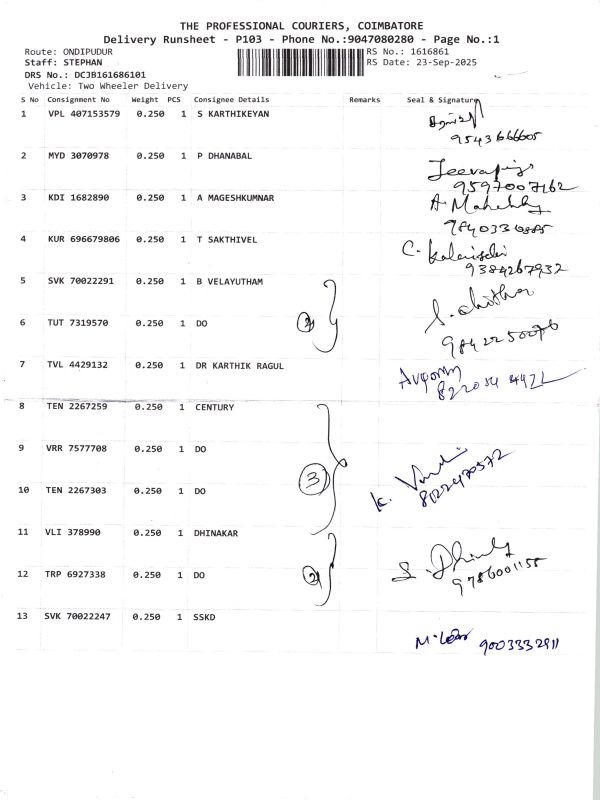 THE PROFESSIONAL COURIERS, COIMBATORE
Delivery Runsheet - P103 - Phone No.:9047080280 - Page No.:1
Route: ONDIPUDUR RS No.: 1616861
Staff: STEPHAN RS Date: 23-Sep-2025
DRS No.: DCJB161686101
Vehicle: Two Wheeler Delivery
S No Consignment No Weight PCS Consignee Details Remarks Seal & Signature
1 VPL 407153579 0.250 1 S KARTHIKEYAN
9543666605
2 MYD 3070978 0.250 1 P DHANABAL
9597007162
3 KDI 1682890 0.250 1 A MAGESHKUMNAR
4 KUR 696679806 0.250 1 T SAKTHIVEL
9384267932
5 SVK 70022291 0.250 1 B VELAYUTHAM
6 TUT 7319570 0.250 1 DO 2
9842250076
7 TVL 4429132 0.250 1 DR KARTHIK RAGUL
8 TEN 2267259 0.250 1 CENTURY
9 VRR 7577708 0.250 1 DO
10 TEN 2267303 0.250 1 DO 3
11 VLI 378990 0.250 1 DHINAKAR
12 TRP 6927338 0.250 1 DO 2
13 SVK 70022247 0.250 1 SSKD
9003332911